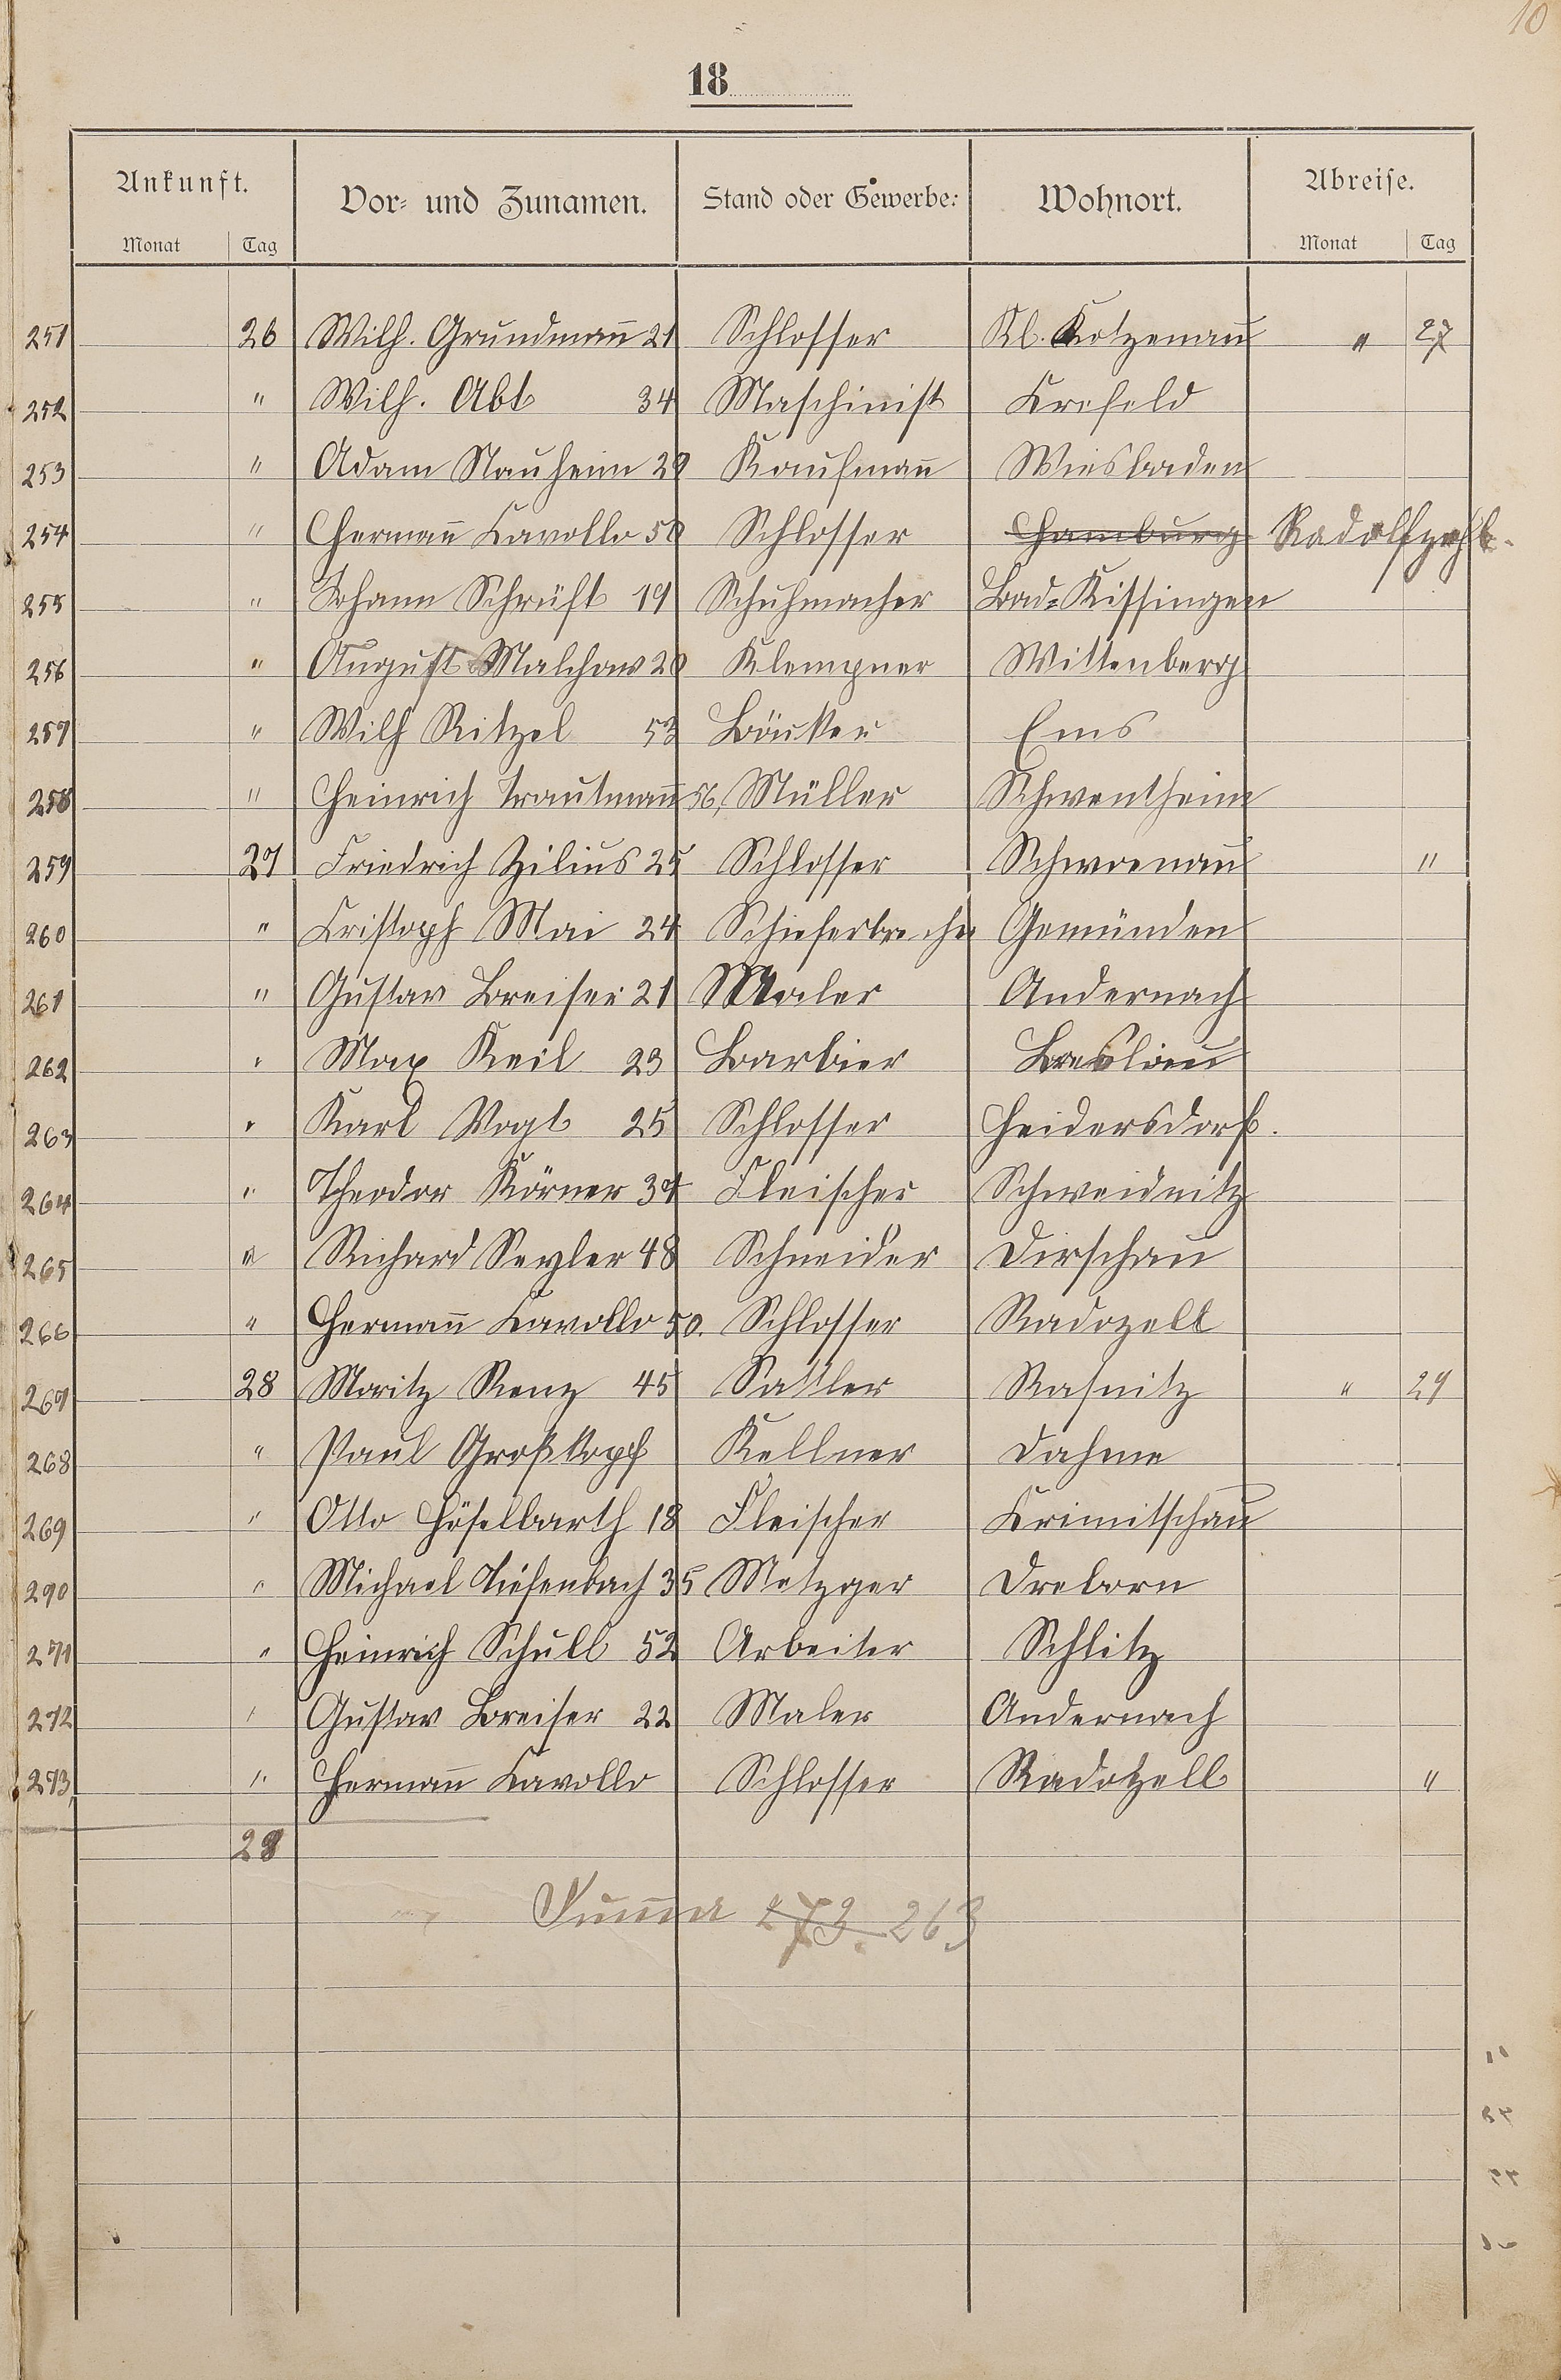 10
18
Ankunft.
Vor- und Zunamen.
Stand oder Gewerbe:
Wohnort.
Abreise.
Monat Tag
Monat Tag
251 26 Wilh. Grundmañ 21 Schlosser Kl. Kotzenau " 27
252 " Wilh. Abt 34 Maschinist Krefeld
253 " Adam Nauheim 29 Kaufmañ Wiesbaden
254 " Hermañ Cavollo 50 Schlosser Hamburg Radolfzell.
255 " Johann Schrüft 19 Schuhmacher Bad-Kissingen
256 " August Malchow 20 Klempner Wittenberg
257 " Wilh Ritzel 53 Bäcker Ems
258 " Heinrich Trautmañ 56, Müller
259 27 Friedrich Zilius 25 Schlosser "
260 " Cristoph Mai 24 Schieferbrecher Gemünden
261 " Gustav Breiser 21 Maler Andernach
262 " Max Keil 23 Barbier Breslau
263 " Karl Vogt 25 Schlosser Heidersdorf.
264 " Theodor Körner 37 Fleischer Schweidnitz
265 " Richard Seyler 48 Schneider Dirschau
266 " Hermañ Cavollo 50. Schlosser Radozell
267 28 Moritz Renz 45 Sattler Rasnitz " 29
268 " Paul Großkopf Kellner Dahme
269 " Otto Höselbarth 18 Fleischer Krimitschau
290 " Michael Tiefenbach 35 Metzger Dreborn
271 " Heinrich Schull 52 Arbeiter Schlitz
272 " Gustav Breiser 22 Maler Andernach
273, " Hermañ Cavollo Schlosser Radotzell "
28
Summa 273. 263